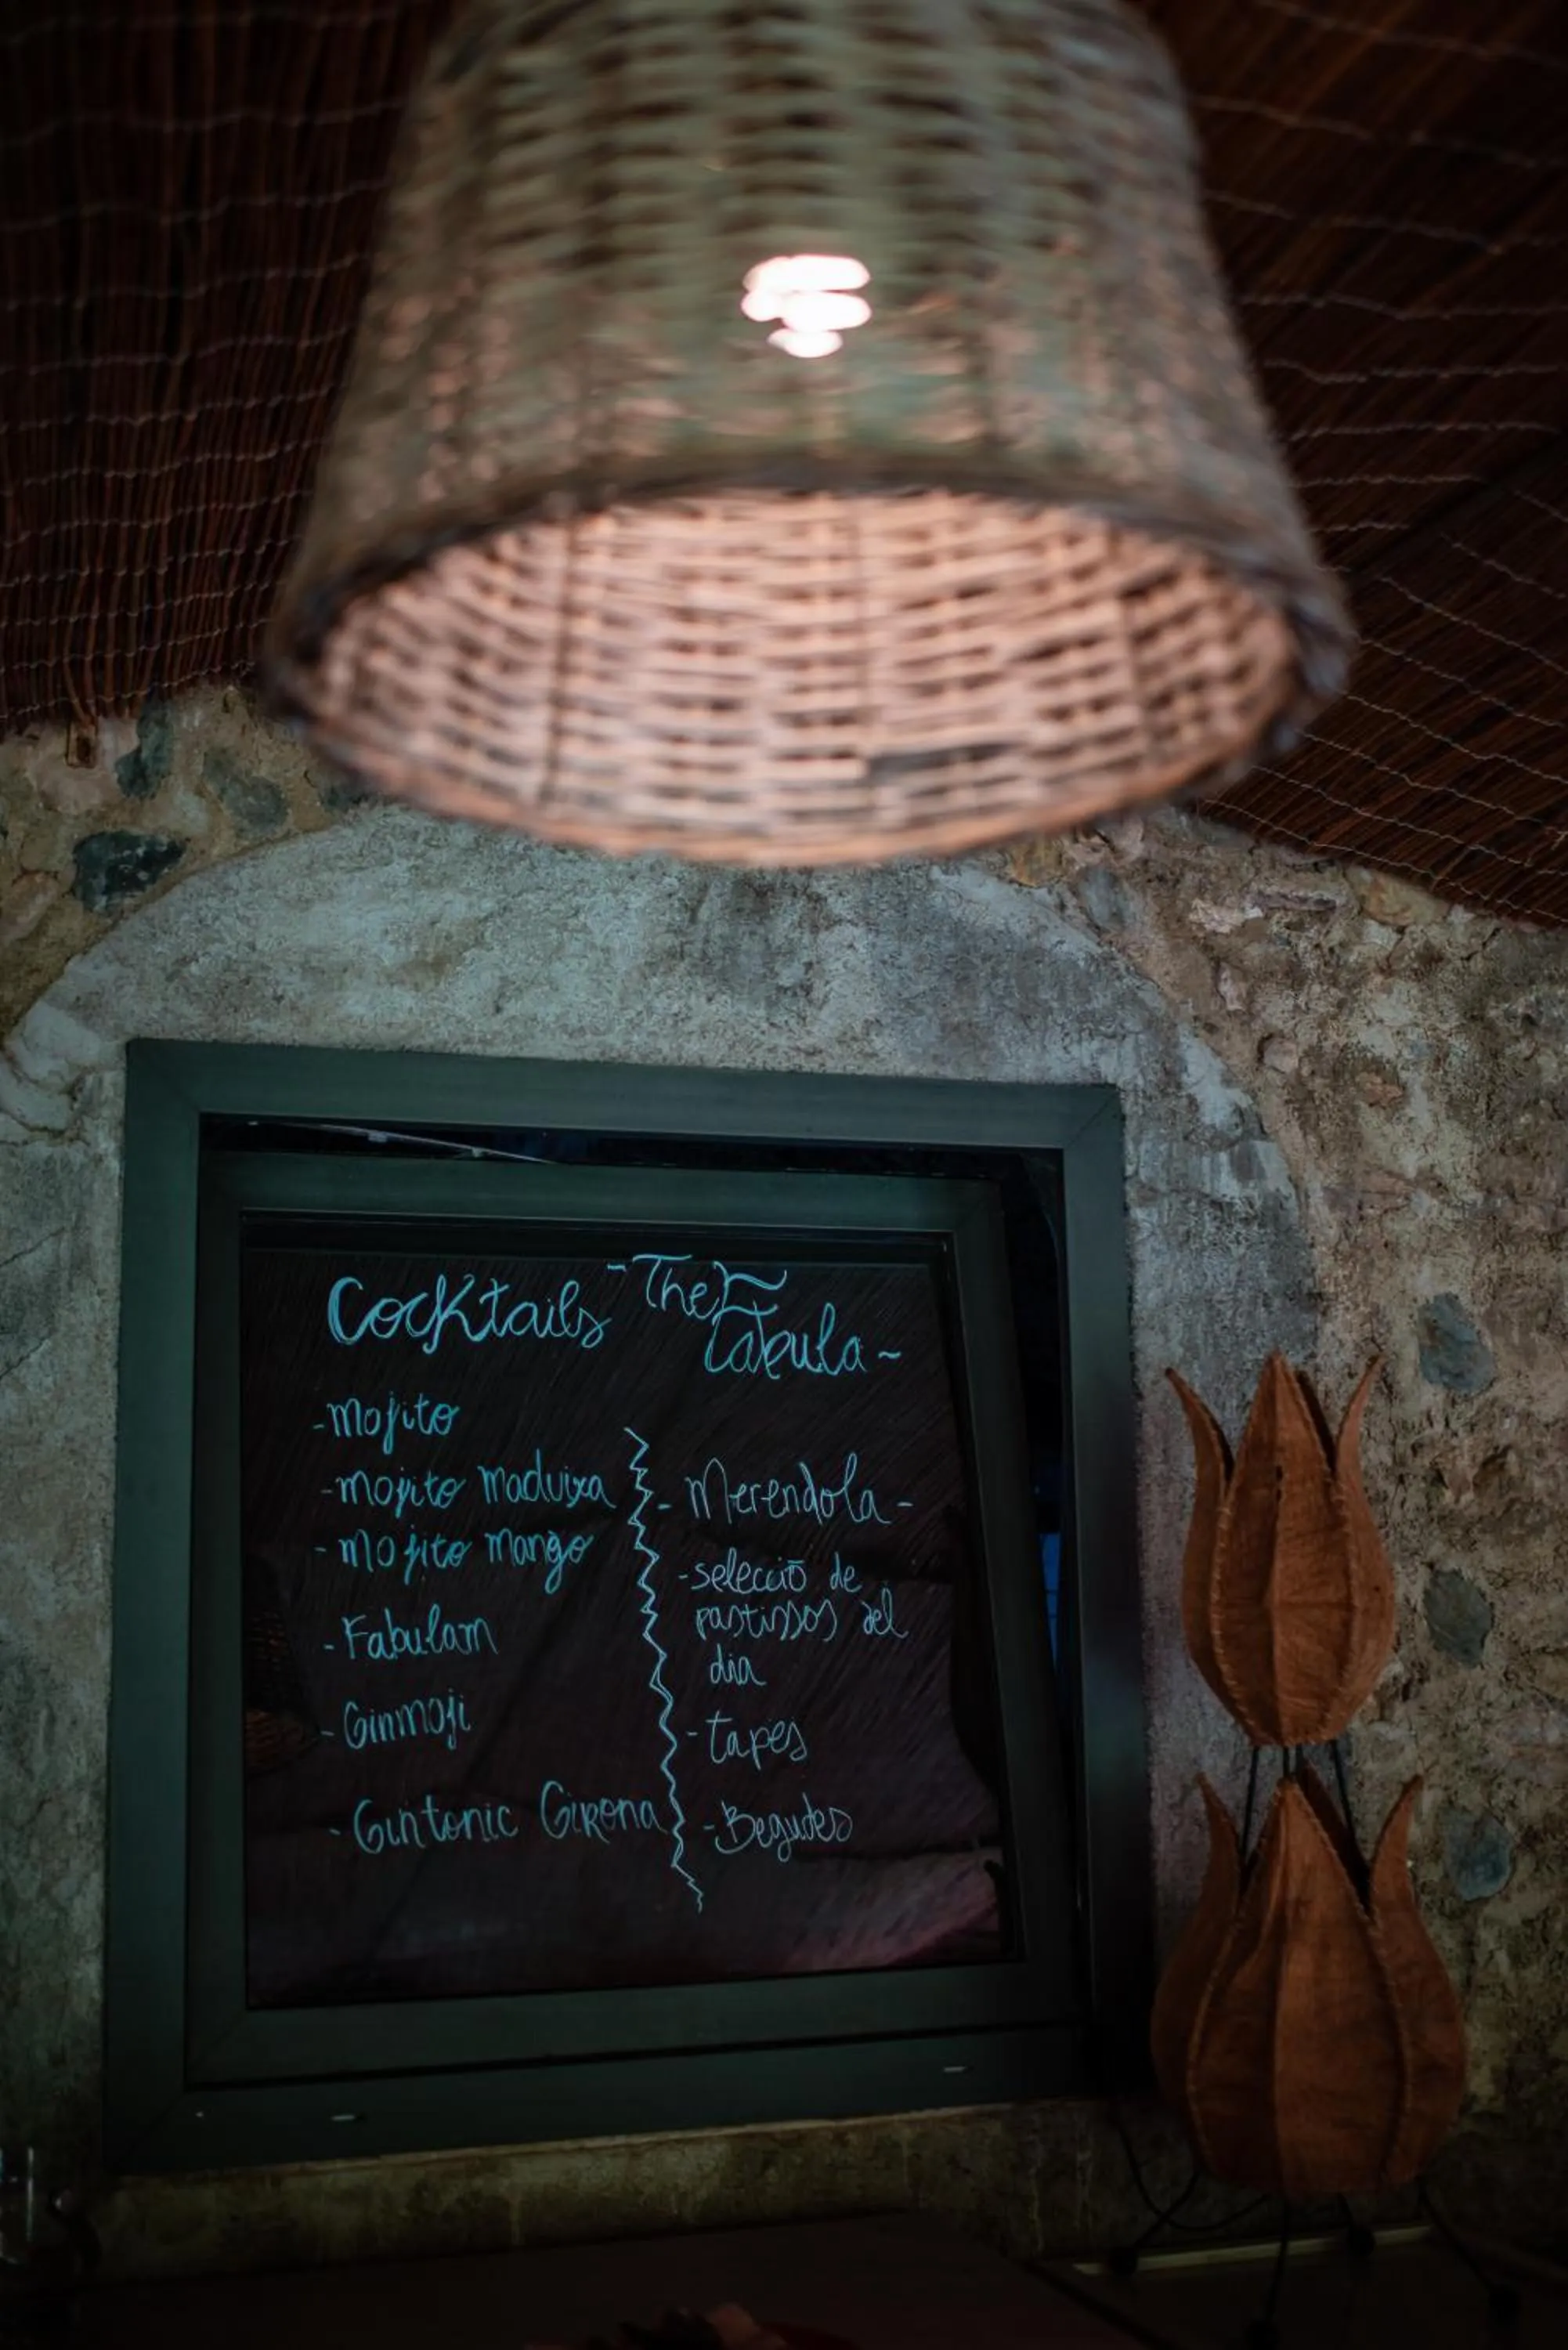 Cocktails
-Mojito
-Mojito Maduixa
-Mojito Mango
-Fabulam
-Ginmoji
-Gintonic Girona
-The Fabula~
-Merendola-
-selecció de
pastissos del
dia
-tapes
-Begudes